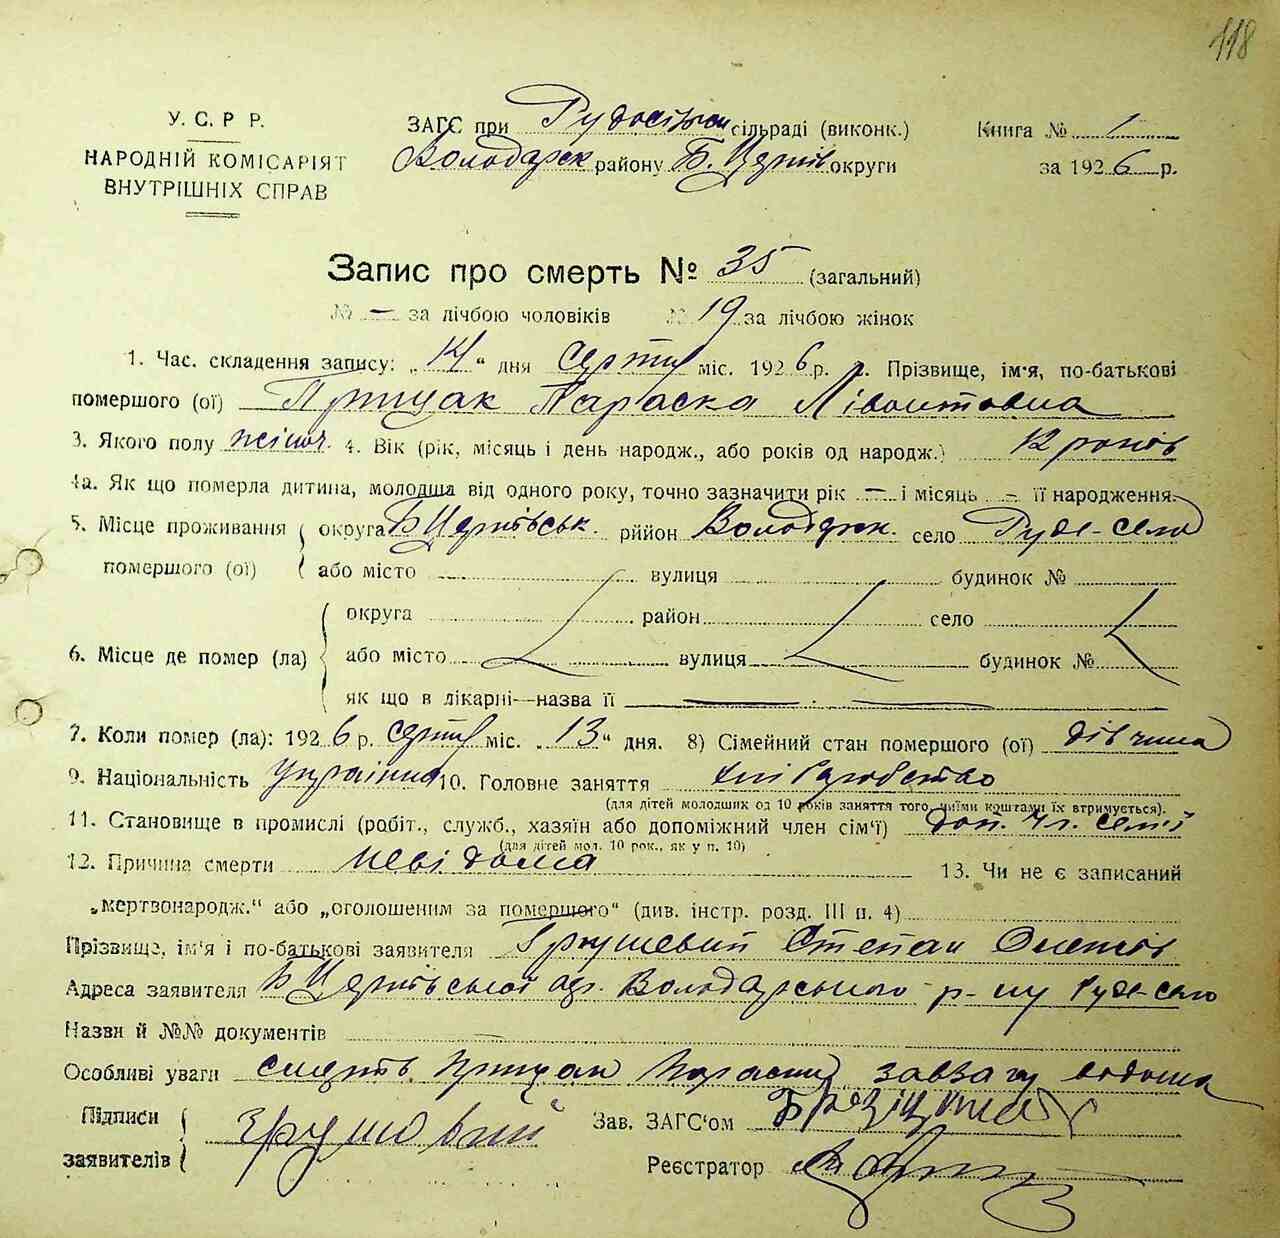 118
У. С. Р Р.
НАРОДНІЙ КОМІСАРІЯТ
ВНУТРІШНІХ СПРАВ
ЗАГС при Рудосільськ сільраді (виконк.)
Володарск району Б. Церків округи
Книга № 1
за 1926 р.
Запис про смерть № 35 (загальний)
№ — за лічбою чоловіків № 19 за лічбою жінок
1. Час. складення запису: „14" дня серпня міс. 1926 р. 2. Прізвище, ім'я, по-батькові
помершого (ої) Прицак Параска Лівонтовна
3. Якого полу жіноч. 4. Вік (рік, місяць і день народж., або років од народж.) 12 років
4а. Як що померла дитина, молодша від одного року, точно зазначити рік — і місяць — її народження.
5. Місце проживання округа Б Церківськ. рийон Володарск. село Руде-село
помершого (ої) або місто вулиця будинок №
округа район село
6. Місце де помер (ла) або місто вулиця будинок №
як що в лікарні—назва її
7. Коли помер (ла): 1926 р. серпня міс. „13" дня. 8) Сімейний стан помершого (ої) дівчина
9. Національність українка 10. Головне заняття хліборобство
(для дітей молодших од 10 років заняття того, чиїми коштами їх втримується).
11. Становище в промислі (робіт., служб., хазяїн або допоміжний член сім'ї) доп. чл. семії
(для дітей мол. 10 рок., як у п. 10)
12. Причина смерти невідома 13. Чи не є записаний
„мертвонародж." або „оголошеним за помершого" (див. інстр. розд. III п. 4)
Прізвище, ім'я і по-батькові заявителя Грушевий Степан
Адреса заявителя Б Церківської окр. Володарського р-ну Руде-село
Назви й №№ документів
Особливі уваги смерть Прицак Параски
Підписи
заявителів
Зав. ЗАГС'ом
Реєстратор